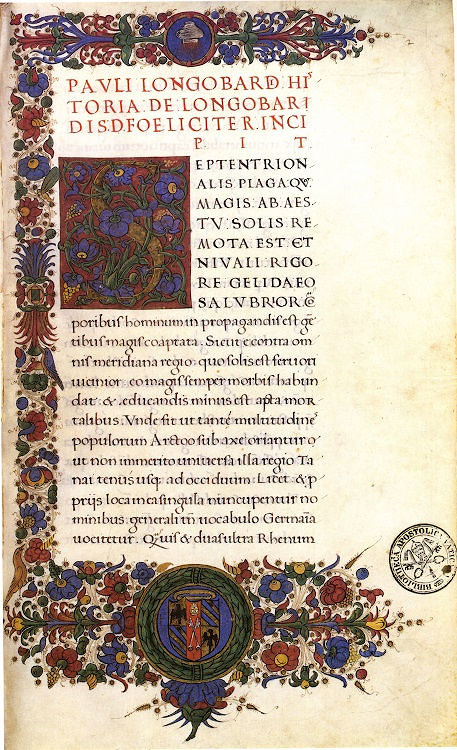 PAVLI LONGOBARD HIS
TORIA DE LONGOBAR
DIS D FOELICITER INCI
P I T
SEPTENTRION
ALIS PLAGA QV
MAGIS AB AES
TV SOLIS RE
MOTA EST ET
NIVALI RIGO
RE GELIDA EO
SALVBRIOR Cō
poribus hominum in propagandis est gē
tibus magis coaptata. Sicut e contra om
nis meridiana regio quo solis est feruori
uicinior eo magis semper morbis habun
dat & educandis minus est apta mor
talibus. Vnde fit ut tantę multitudines
populorum Arctoo sub axe oriantur
ut non immerito uniuersa illa regio Ta
nai tenus usq; ad occiduum. Licet & p
prijs loca in ea singula nuncupentur no
minibus generali tñ uocabulo Germaīa
uocitetur. Q̃uis & duas ultra Rhenum
BIBLIOTHECA APOSTOLICA VATICANA